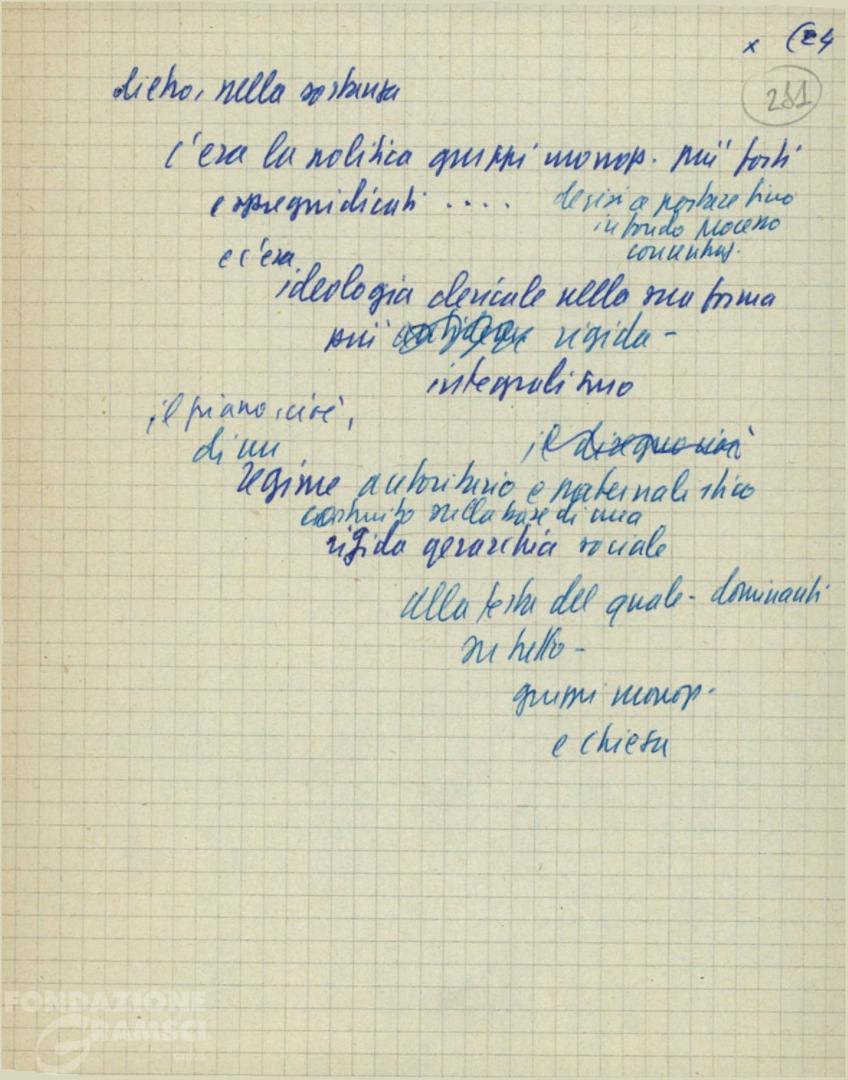 x (24
281
dietro, nella sostanza
c'era la politica gruppi monop. più forti
e spregiudicati .... decisi a portare fino
in fondo processo
concentraz.
e c'era
ideologia clericale nella sua forma
più rigida -
integralismo
il piano, cioè,
il disegno cioè
di un
regime autoritario e paternalistico
costruito sulla base di una
rigida gerarchia sociale
alla testa del quale - dominanti
su tutto -
gruppi monop.
e chiesa
FONDAZIONE
GRAMSCI